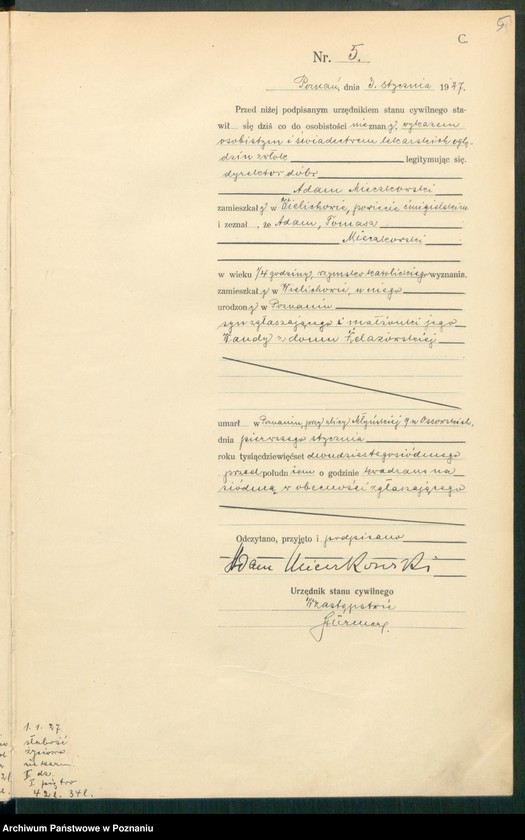 5
C.
Nr. 5.
Poznań, dnia 3. stycznia 1927.
Przed niżej podpisanym urzędnikiem stanu cywilnego sta-
wił się dziś co do osobistości nieznany, wykazem
osobistym i świadectwem lekarskich oglę-
dzin zwłok legitymując się.
dyrektor dóbr
Adam Mieczkowski
zamieszkały w Wielichowie, powiecie śmigielskim
i zeznał, że Adam, Tomasz
Mieczkowski
w wieku 1/4 godziny, rzymsko katolickiego wyznania.
zamieszkały w Wielichowie, u niego
urodzony w Poznaniu
syn zgłaszającego i małżonki jego
Wandy z domu Żelazowskiej
umarł w Poznaniu, przy ulicy Młyńskiej 9 u Ossowskich,
dnia pierwszego stycznia
roku tysiącdziewięćset dwudziestegosiódmego
przed południem o godzinie kwadrans na
siódmą w obecności zgłaszającego
Odczytano, przyjęto i podpisano
Adam Mieczkowski
Urzędnik stanu cywilnego
W zastępstwie
1. 1. 27.
słabość
życiowa
II dz.
I piętro
42 l. 34 l.
Archiwum Państwowe w Poznaniu